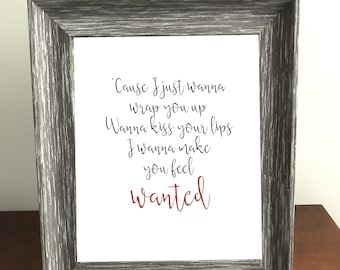 'Cause I just wanna
wrap you up
Wanna kiss your lips
I wanna make
you feel
wanted